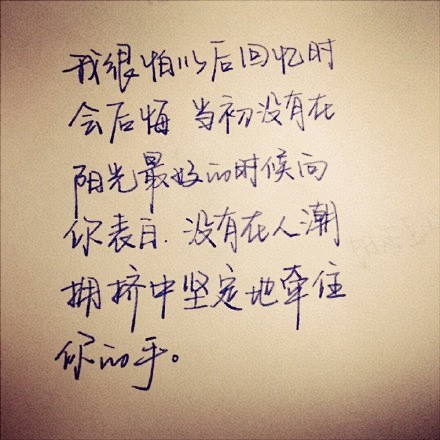 我很怕以后回忆时
会后悔 当初没有在
阳光最好的时候向
你表白.没有在人潮
拥挤中坚定地牵住
你的手。